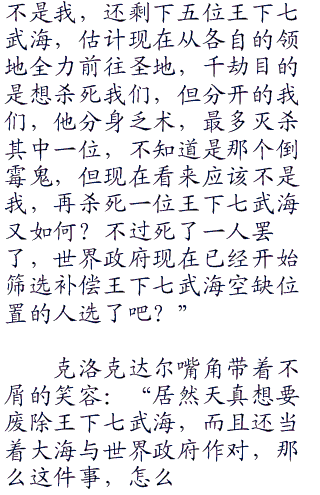 不是我，还剩下五位王下七
武海，估计现在从各自的领
地全力前往圣地，千劫目的
是想杀死我们，但分开的我
们，他分身乏术，最多灭杀
其中一位，不知道是那个倒
霉鬼，但现在看来应该不是
我，再杀死一位王下七武海
又如何？不过死了一人罢
了，世界政府现在已经开始
筛选补偿王下七武海空缺位
置的人选了吧？”
克洛克达尔嘴角带着不
屑的笑容：“居然天真想要
废除王下七武海，而且还当
着大海与世界政府作对，那
么这件事，怎么